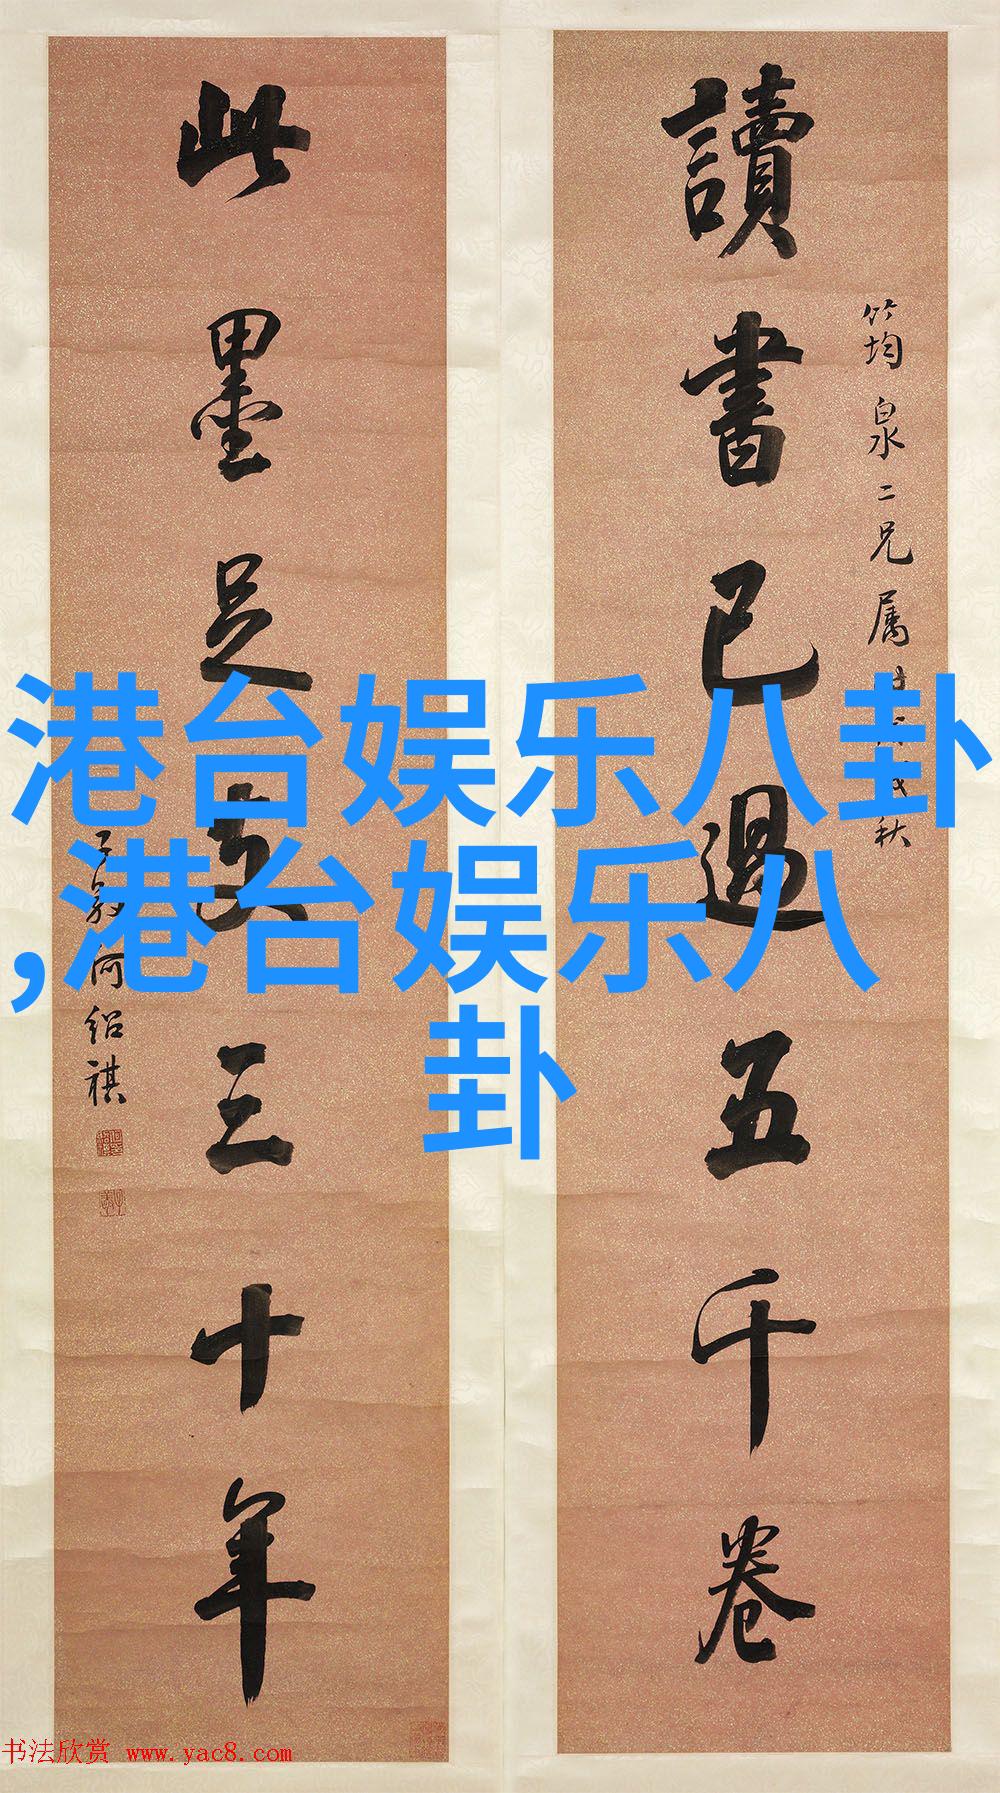 讀書已過五千卷
竹均泉二兄属
秋
此墨足支三十年
子敦何绍祺
港台娱乐八卦
,港台娱乐八
卦
书法欣赏 www.yac8.com